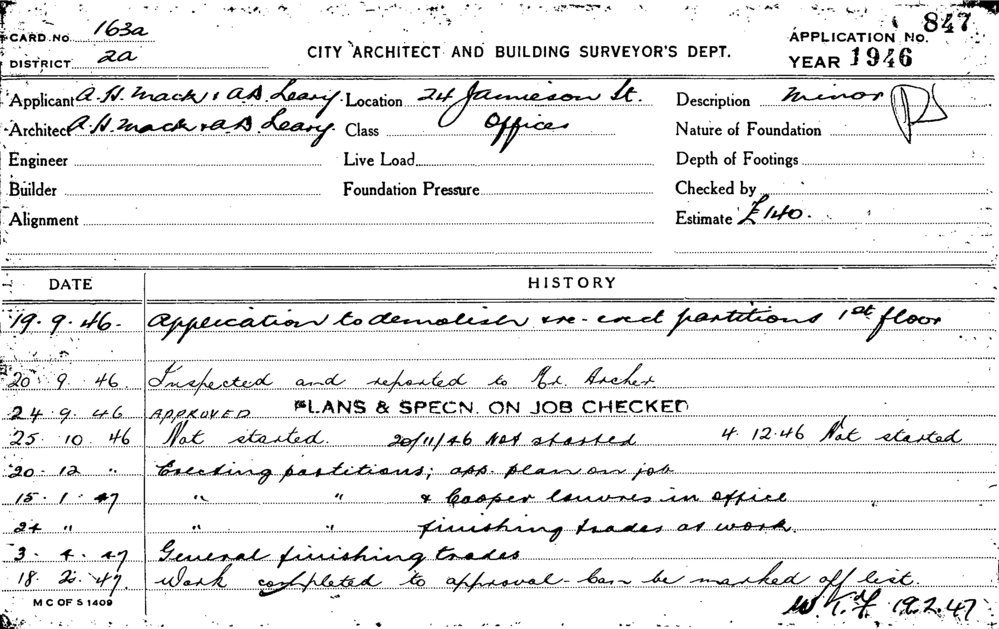 CARD. NO. 163a
DISTRICT 2a
CITY ARCHITECT AND BUILDING SURVEYOR'S DEPT.
APPLICATION NO. 847
YEAR 1946
Applicant A. H. Mack & A.D. Leary. Location 24 Jamieson St. Description Minor
Architect A. H. Mack & A.D. Leary. Class Offices Nature of Foundation
Engineer Live Load Depth of Footings
Builder Foundation Pressure Checked by
Alignment Estimate £140.
DATE HISTORY
19.9.46. Application to demolish & re-erect partitions 1st floor
20.9.46. Inspected and reported to Mr. Archer
24.9.46 APPROVED PLANS & SPECN. ON JOB CHECKED
25.10.46 Not started. 20/11/46 Not started 4.12.46 Not started
20.12 " Erecting partitions; app. plan on job
15.1.47 " " & Cooper louvres in office
24 " " " finishing trades at work.
3.4.47 General finishing trades
18.2.47. Work completed to approval - Can be marked off list.
M C OF S 1409
19.2.47